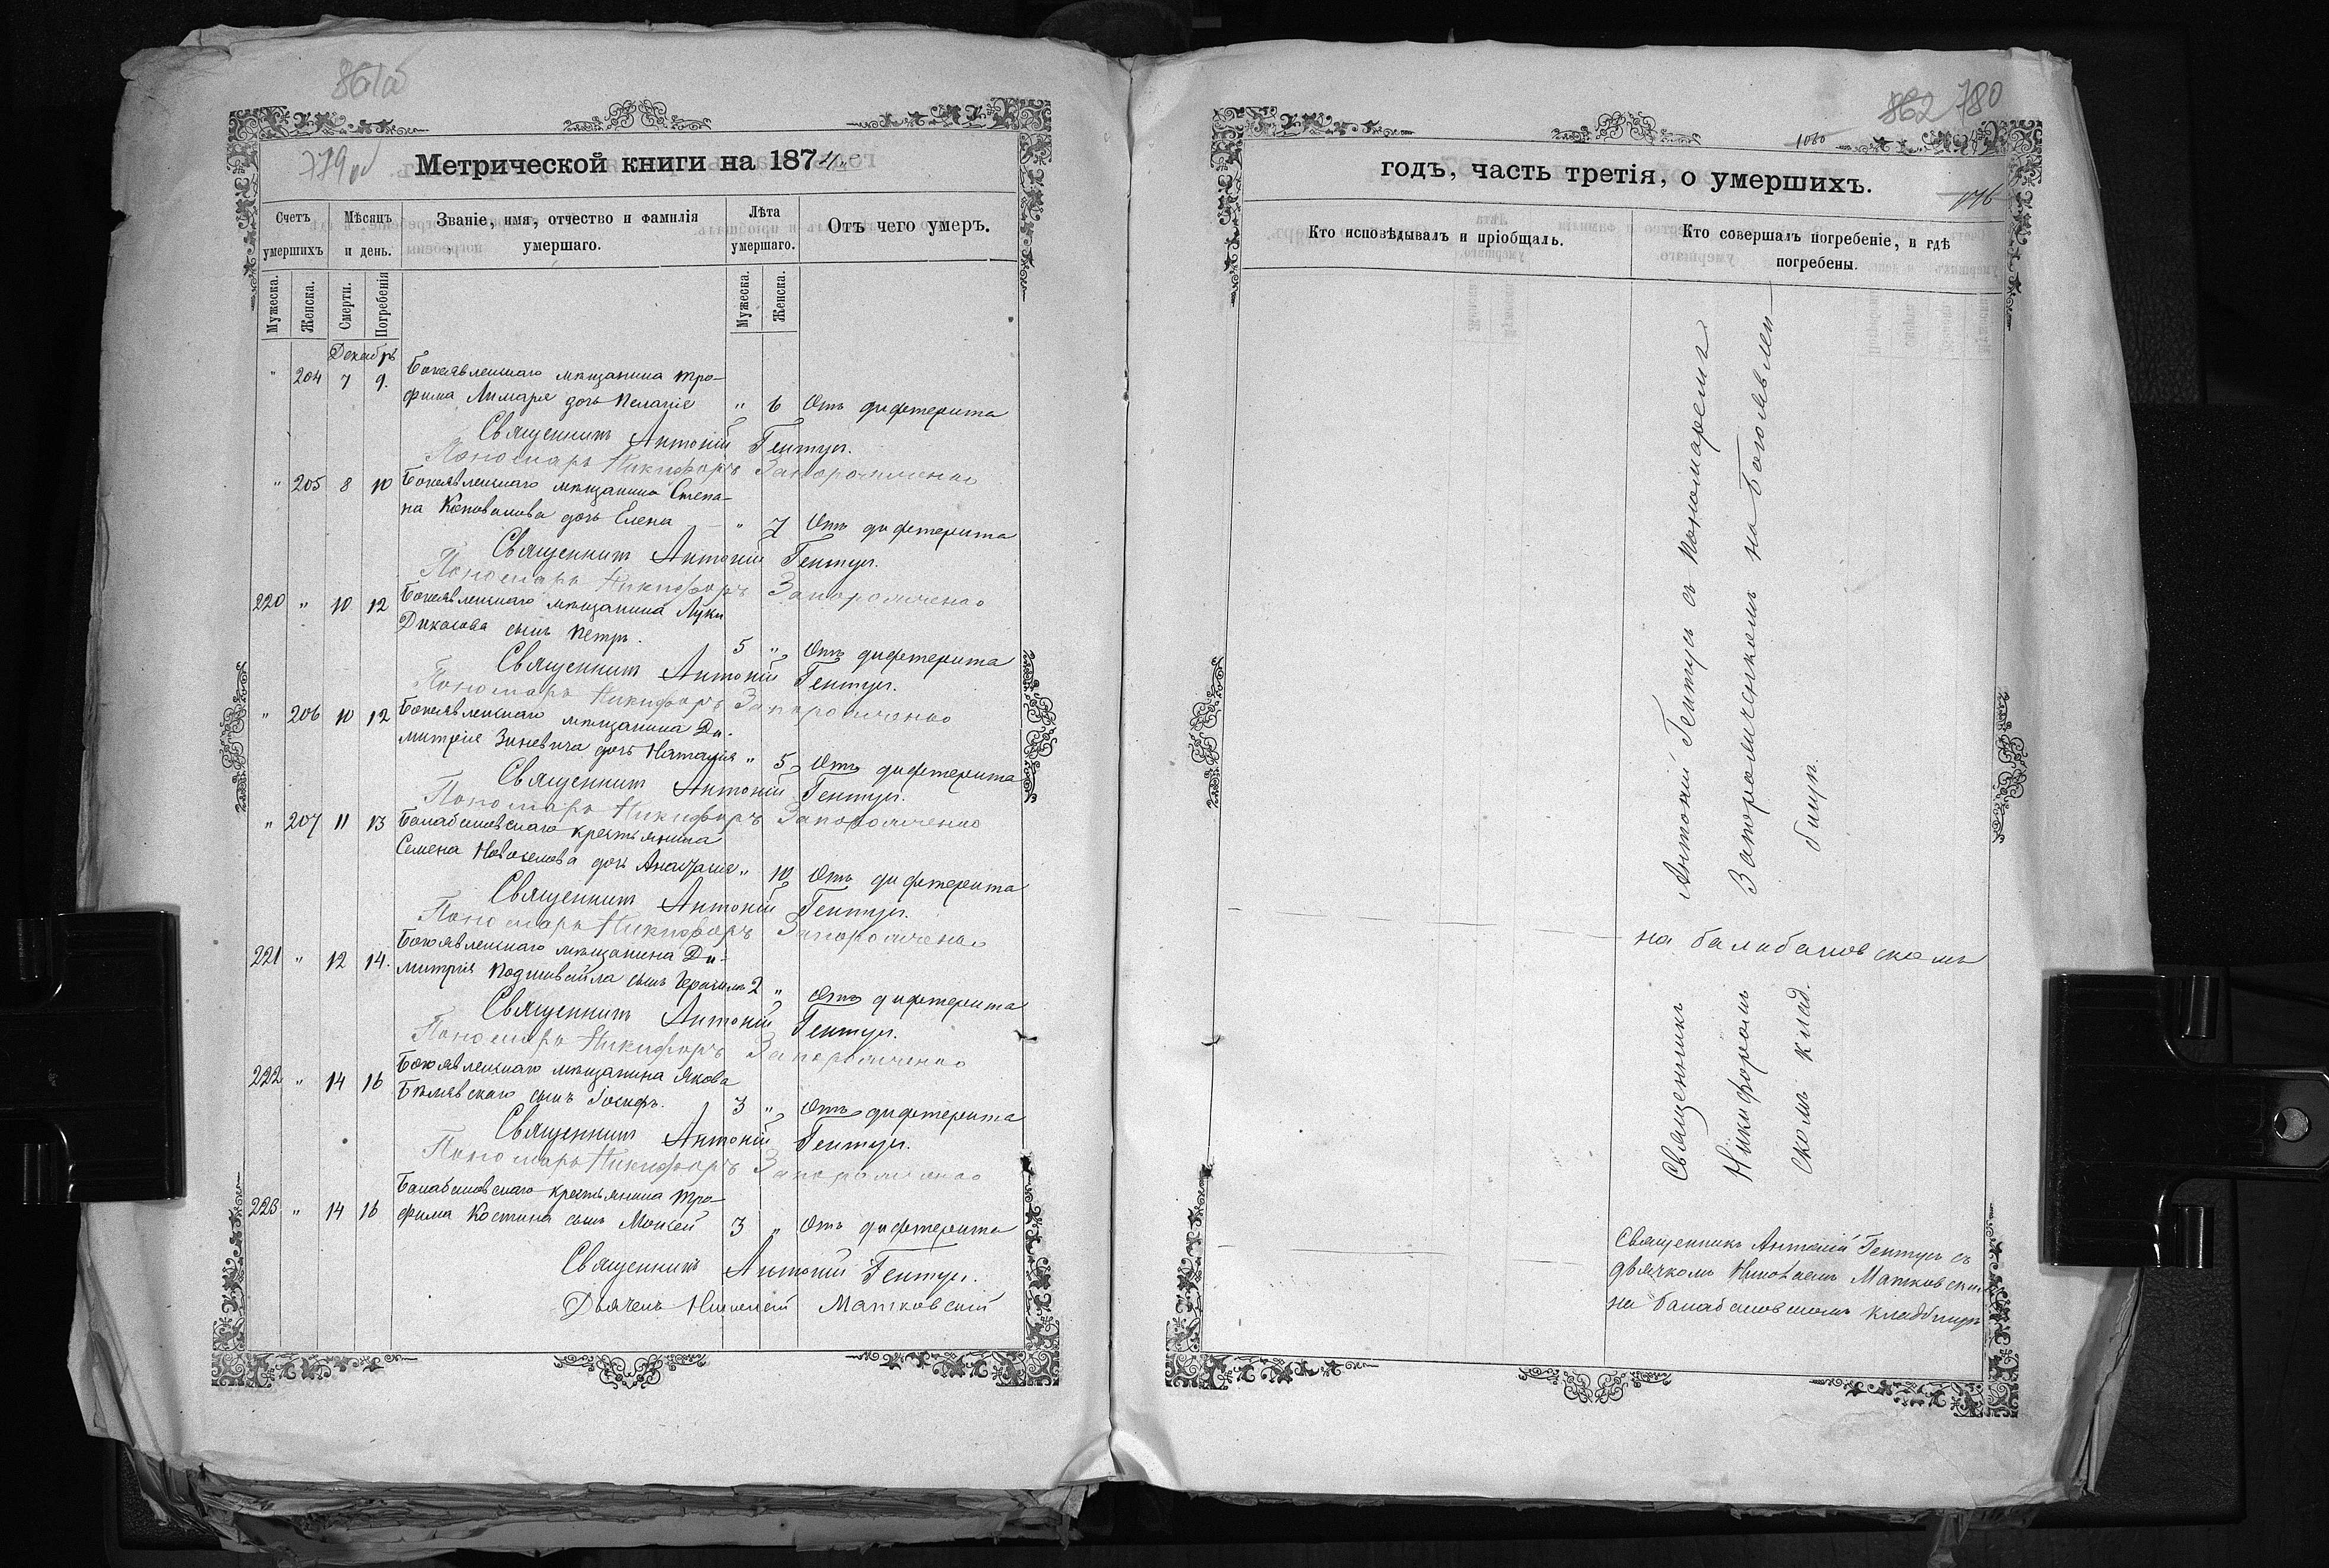 861об
779об
Метрической книги на 187
Счетъ умершихъ
Мѣсяцъ и день.
Званіе, имя, отчество и фамилія умершаго.
Лѣта умершаго.
Отъ чего умеръ.
Мужеска.
Женска.
Смерти.
Погребенія
Мужеска.
Женска.
Декабрь
" 204 7 9. Богоявленскаго мѣщанина Тро-
фима Лимаря дочь Пелагія " 6 Отъ дифтерита
Священникъ Антоній Гентуш.
Пономарь Никифоръ
" 205 8 10 Богоявленскаго мѣщанина Степа-
на Коновалова дочь Елена " 7 Отъ дифтерита
Священникъ Антоній Гентуш.
Пономарь Никифоръ
220 " 10 12 Богоявленскаго мѣщанина Луки
сынъ Петръ. 5 " Отъ дифтерита
Священникъ Антоній Гентуш.
Пономарь Никифоръ
" 206 10 12 Богоявленскаго мѣщанина Ди-
митрія Зиневича дочь Наталія " 5 Отъ дифтерита
Священникъ Антоній Гентуш.
Пономарь Никифоръ
" 207 11 13 Балабановскаго крестьянина
Семена Новоселова дочь " 10 Отъ дифтерита
Священникъ Антоній Гентуш.
Пономарь Никифоръ
221 " 12 14. Богоявленскаго мѣщанина Ди-
митрія сынъ Герасимъ 2 " Отъ дифтерита
Священникъ Антоній Гентуш.
Пономарь Никифоръ
222 " 14 16 Богоявленскаго мѣщанина Якова
Бѣлявскаго сынъ Іосифъ. 3 " Отъ дифтерита
Священникъ Антоній Гентуш.
Пономарь Никифоръ
223 " 14 16 Балабановскаго крестьянина Тро-
фима Костина сынъ Моисей 3 " Отъ дифтерита
Священникъ Антоній Гентуш.
Дьячекъ Николай Матковскій
862 780
1060
годъ, часть третія, о умершихъ.
Кто исповѣдывалъ и пріобщалъ.
Кто совершалъ погребеніе, и гдѣ погребены.
Священникъ Антоній Гентушъ съ Пономаремъ
Никифоромъ на Богоявлен
скомъ клад. бищѣ.
на балабановскомъ
Священникъ Антоній Гентушъ съ
дьячкомъ Николаемъ Матковским
на балабановскомъ кладбищѣ